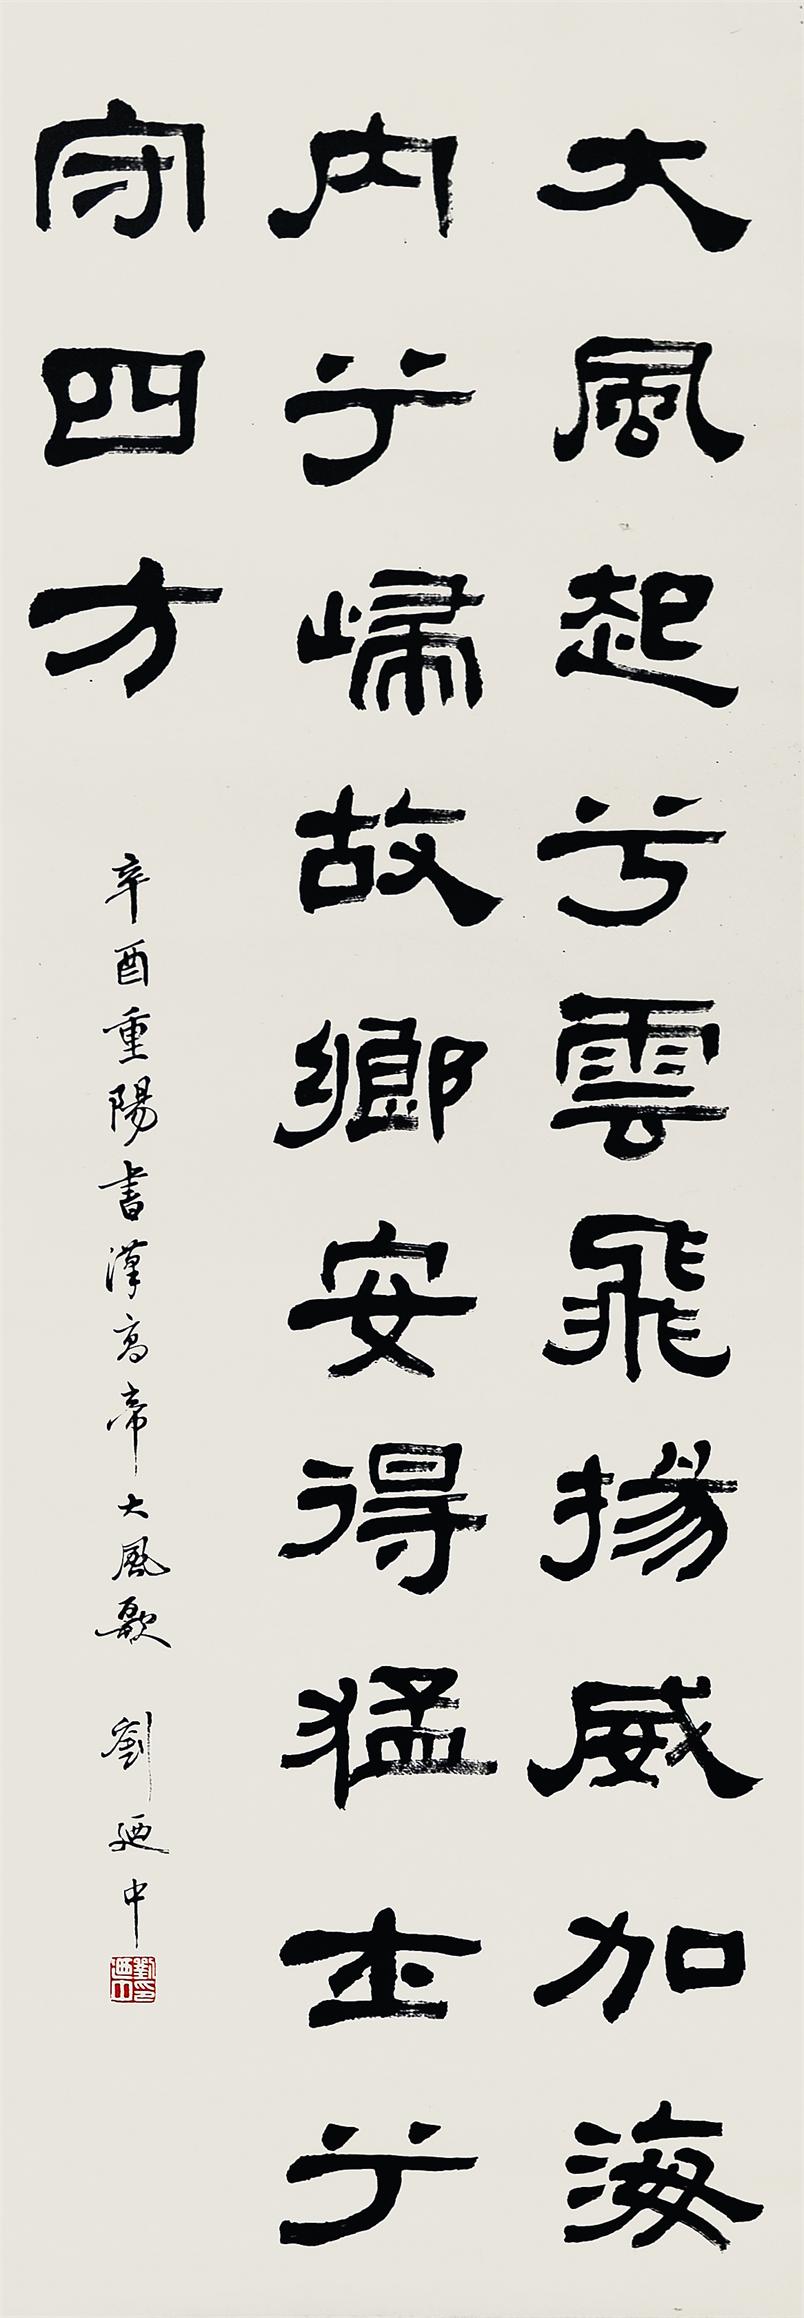 大風起兮雲飛揚威加海
内兮歸故鄉安得猛士兮
守四方
辛酉重陽書漢高帝大風歌 劉迺中